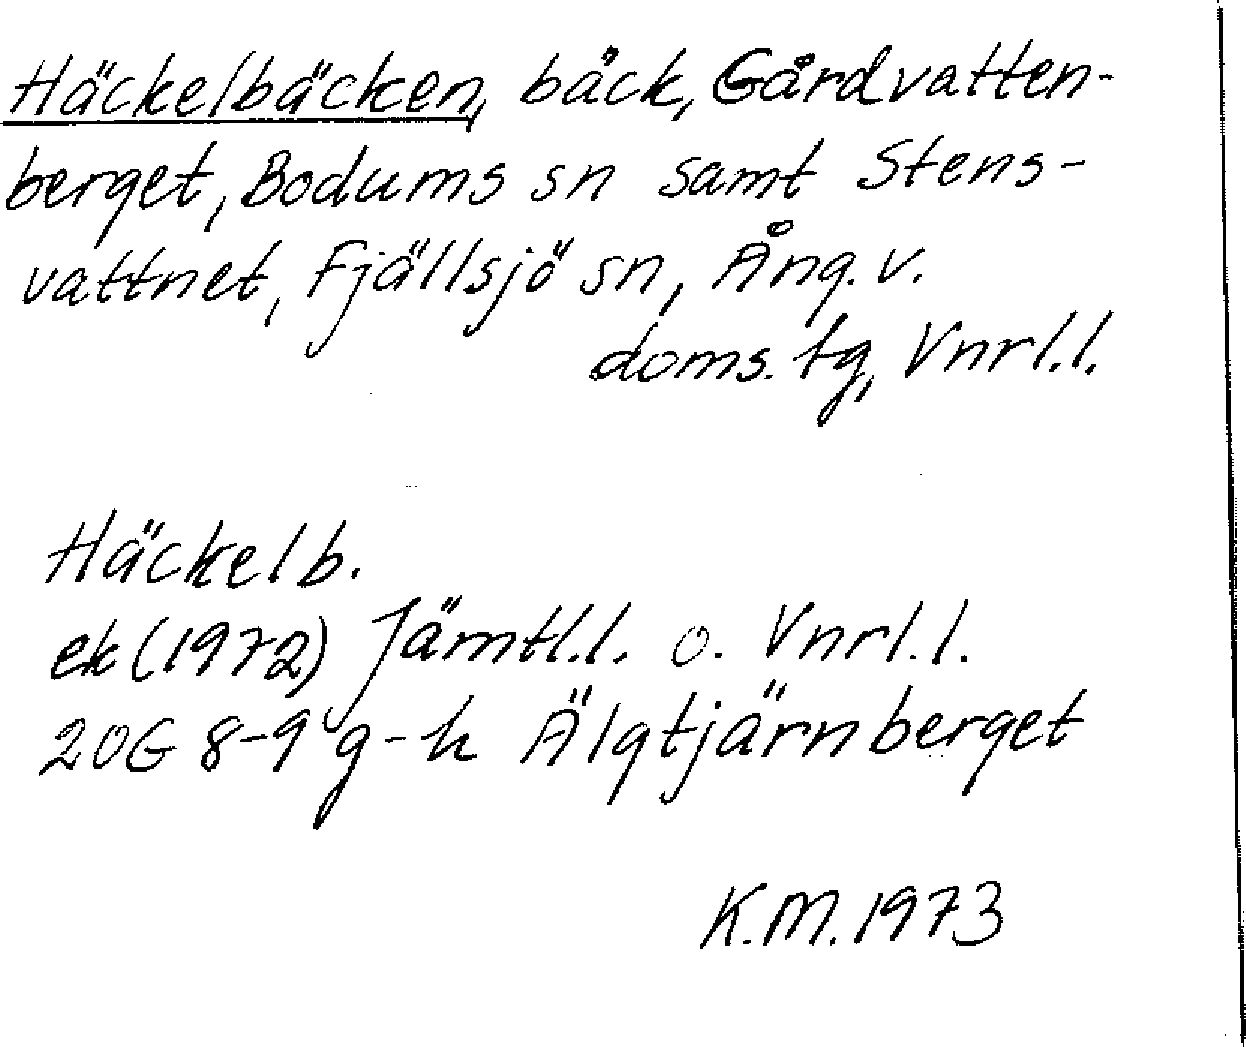 Häckelbäcken, bäck, Gårdvatten-
berget, Bodums sn samt Stens-
vattnet, Fjällsjö sn, Ång. v.
doms. tg, Vnrl.l.
Häckelb.
ek (1972) Jämtl.l. o. Vnrl.l.
20G 8-9 g-h Älgtjärnberget
K.M. 1973